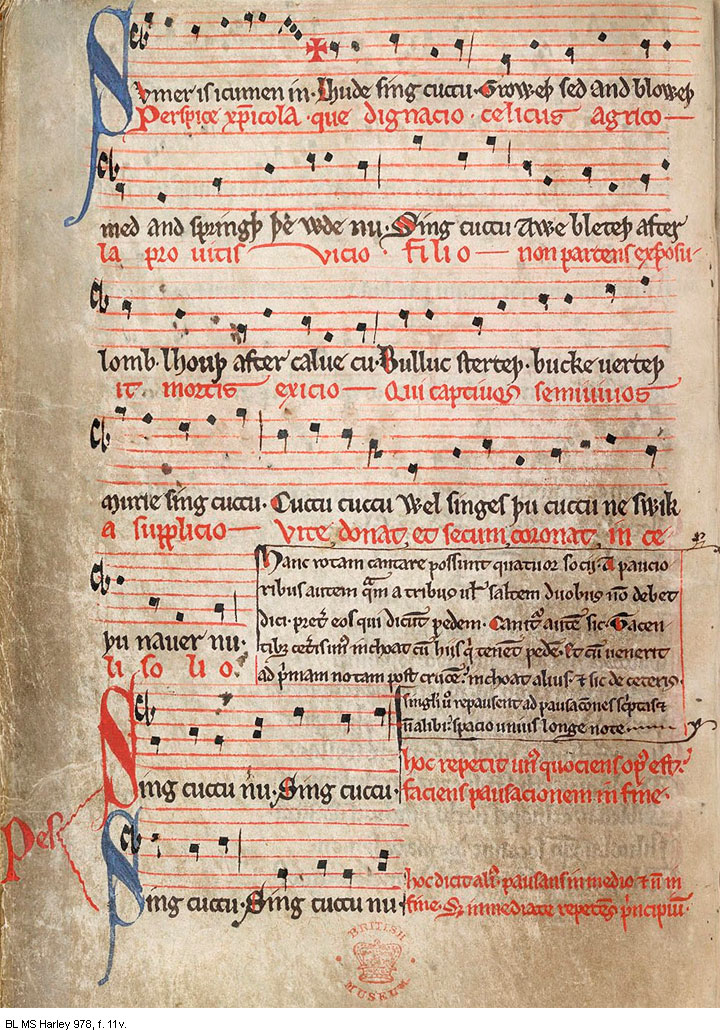 Svmer is icumen in · Lhude sing cuccu · Groweþ sed and bloweþ
Perspice xp̅icola · que dignacio · celicus agrico —
med and springþ þe wde nu · Sing cuccu Awe bleteþ after
la pro uitis vicio · filio — non parcens exposu-
lomb · lhouþ after calue cu · Bulluc sterteþ · bucke uerteþ
it mortis exicio — Qui captiuos semiuiuos
murie sing cuccu · Cuccu cuccu Wel singes þu cuccu ne swik
a supplicio — Vite donat, et secum coronat, in ce-
þu nauer nu ·
li solio ·
Hanc rotam cantare possunt quatuor socii · A paucio
ribus autem qam a tribus ul saltem duobus no debet
dici · preter eos qui dicunt pedem · Canitur aute sic · Tacen
tibz ceteris un inchoat cu hiis qi tenent pede · Et cu uenerit
ad pimam notam post cruce · inchoat alius · et sic de ceteris ·
singli u repausent ad pausacones scriptas et
n alibi · spacio unius longe note
Pes
Sing cuccu nu · Sing cuccu ·
hoc repetit un quociens opus est ·
faciens pausacionem in fine ·
Sing cuccu · Sing cuccu nu
hoc dicit alius pausans in medio et n in
fine · Sz immediate repetens pincipiu ·
BRITISH MUSEUM
BL MS Harley 978, f. 11v.